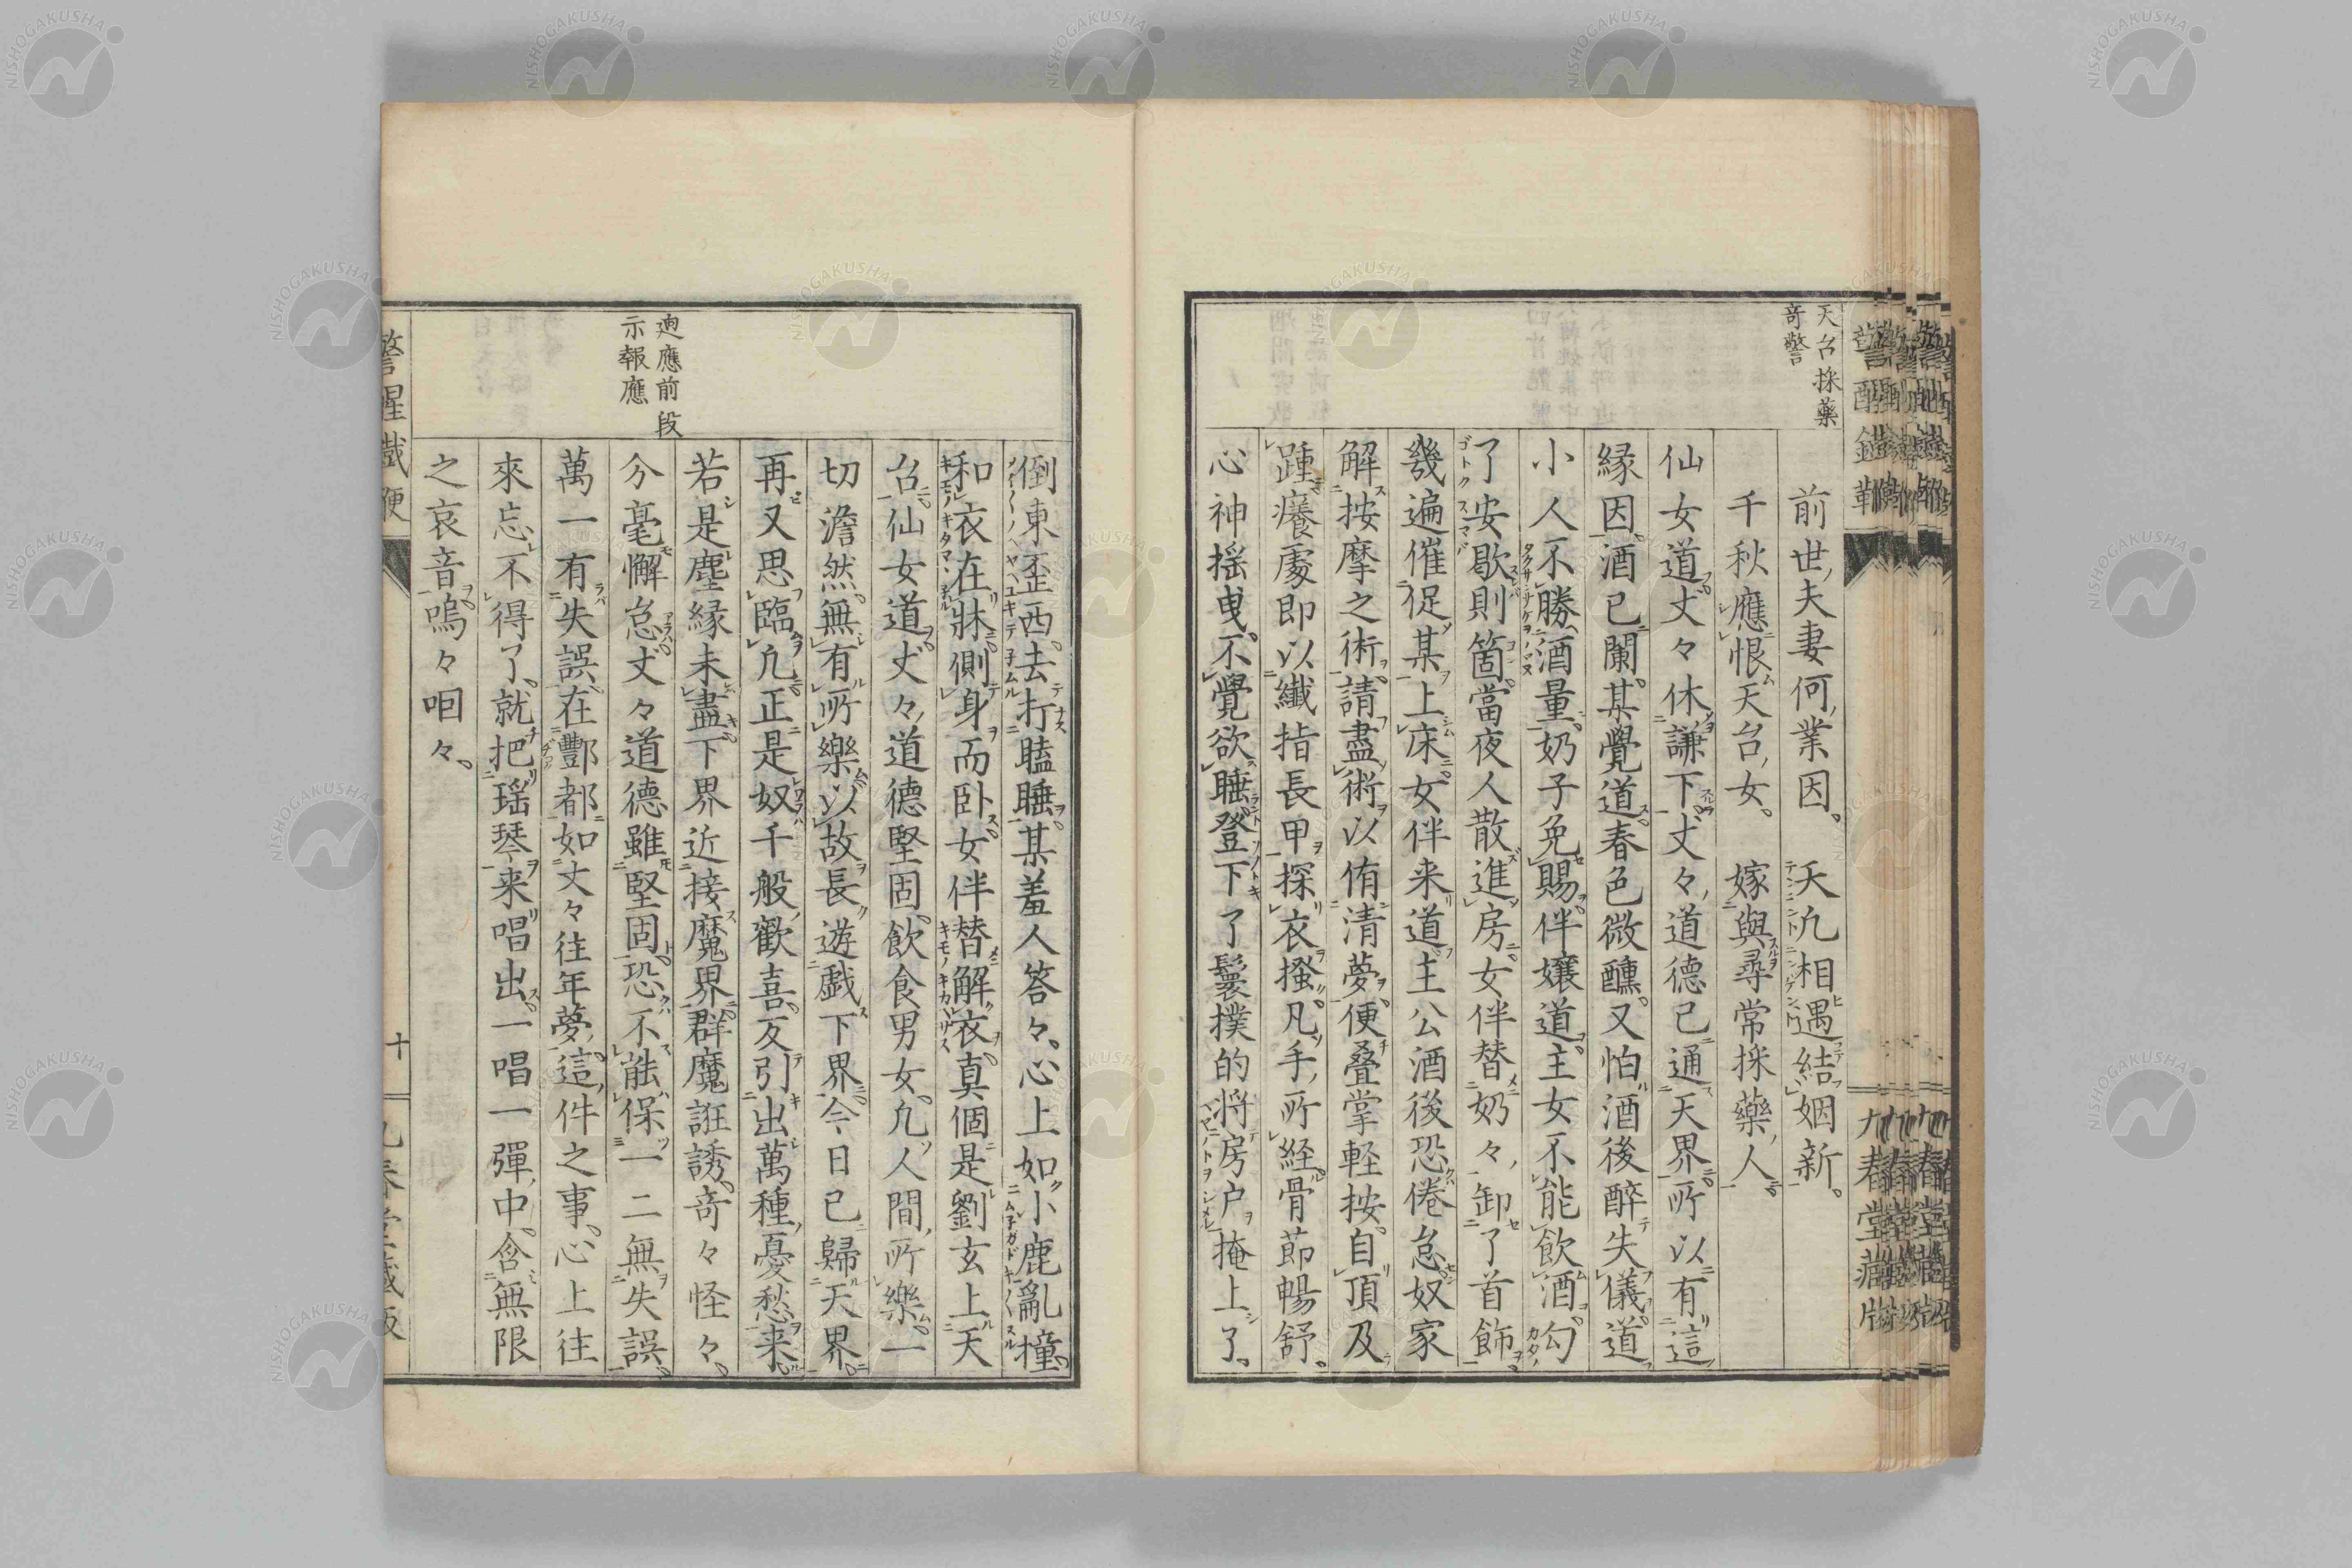 天台採藥
奇警
前世夫妻何業因。 天凢相遇結姻新。
千秋應恨天台女。 嫁與尋常採藥人。
仙女道丈々休謙下。丈々道德已通天界。所以有這
縁因。酒已闌。某覺道春色微醺。又怕酒後醉失儀。道
小人不勝酒量。奶子免賜。伴孃道。主女不能飲酒。勾
了安歇則箇。當夜人散進房。女伴替奶々卸了首飾。
幾遍催促某上床。女伴来道。主公酒後恐倦怠。奴家
解按摩之術。請盡術以侑清夢。便叠掌軽按。自頂及
踵。癢處即以纖指長甲探衣搔。凡手所経。骨節暢舒。
心神揺曳。不覺欲睡。登下了鬟撲的将房户掩上了。
倒東歪西。去打瞌睡。某羞人答々。心上如小鹿亂撞。
和衣在牀側身而卧。女伴替解衣。真個是劉玄上天
台。仙女道。丈々道德堅固。飲食男女。凢人間所樂。一
切澹然。無有所樂。以故長遊戲下界。今日已歸天界。
再又思臨凢。正是奴千般歡喜。反引出萬種憂愁来。
若是塵縁未盡。下界近接魔界。群魔誑誘。奇々怪々。
廻應前段
示報應
分毫懈怠。丈々道德雖堅固。恐不能保一二無失誤。
萬一有失誤。在酆都如丈々往年夢。這件之事。心上往
來忘不得了。就把瑶琴来唱出。一唱一彈中。含無限
之哀音。嗚々咽々。
警醒鐵鞭
十
九春堂藏版